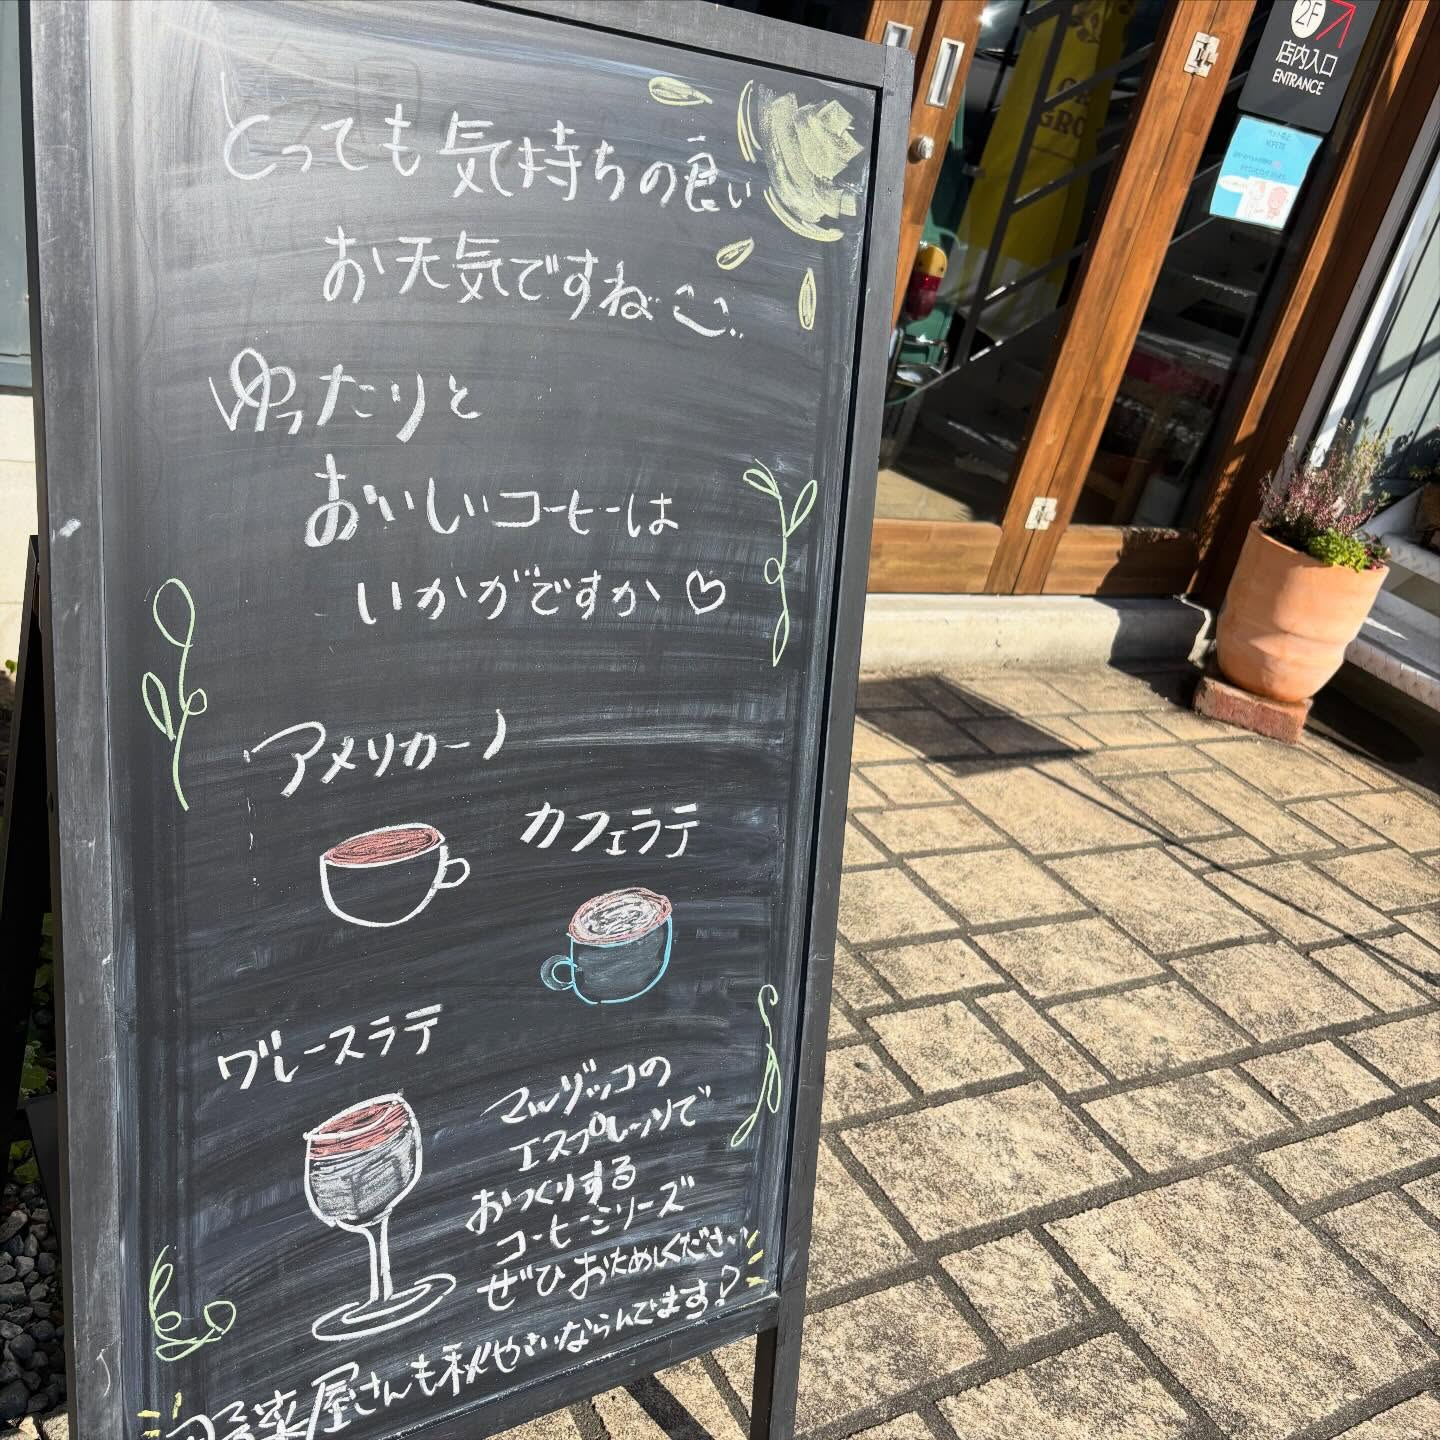 とっても気持ちの良い
お天気ですね
ゆったりと
おいしいコーヒーは
いかがですか♡
アメリカーノ
カフェラテ
グレースラテ
マルゾッコの
エスプレッソで
おつくりする
コーヒーシリーズ
ぜひおためしください
屋さんも秋やさいならんでます!
2F
店内入口
ENTRANCE
GRO